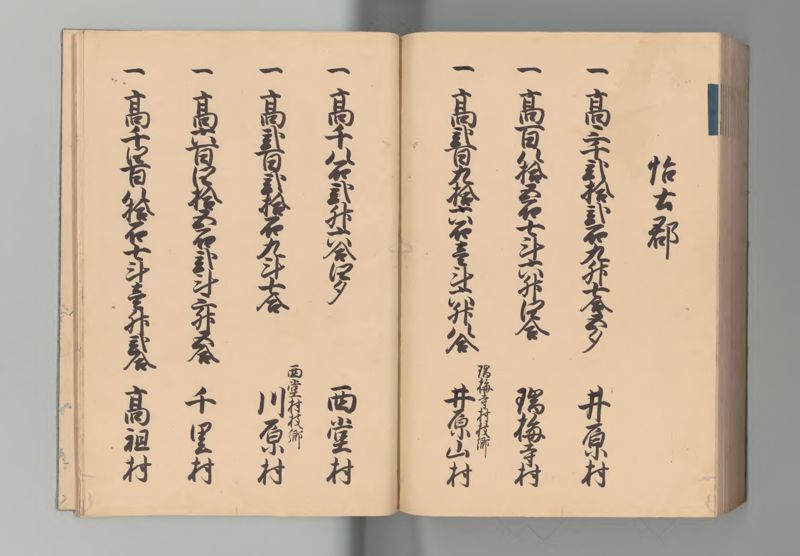 怡土郡
一高二千弐拾弐石九升七合五夕
井原村
一高百八拾五石七斗六升四合
瑞梅寺村
一高弐百九拾六石壱斗六升八合
瑞梅寺村枝郷
井原山村
一高千八石弐升六合四夕
西堂村
一高弐百弐拾石九斗七合
西堂村枝郷
川原村
一高六百四拾五石弐斗二升五合
千里村
一高千四百八拾石七斗壱升弐合
高祖村